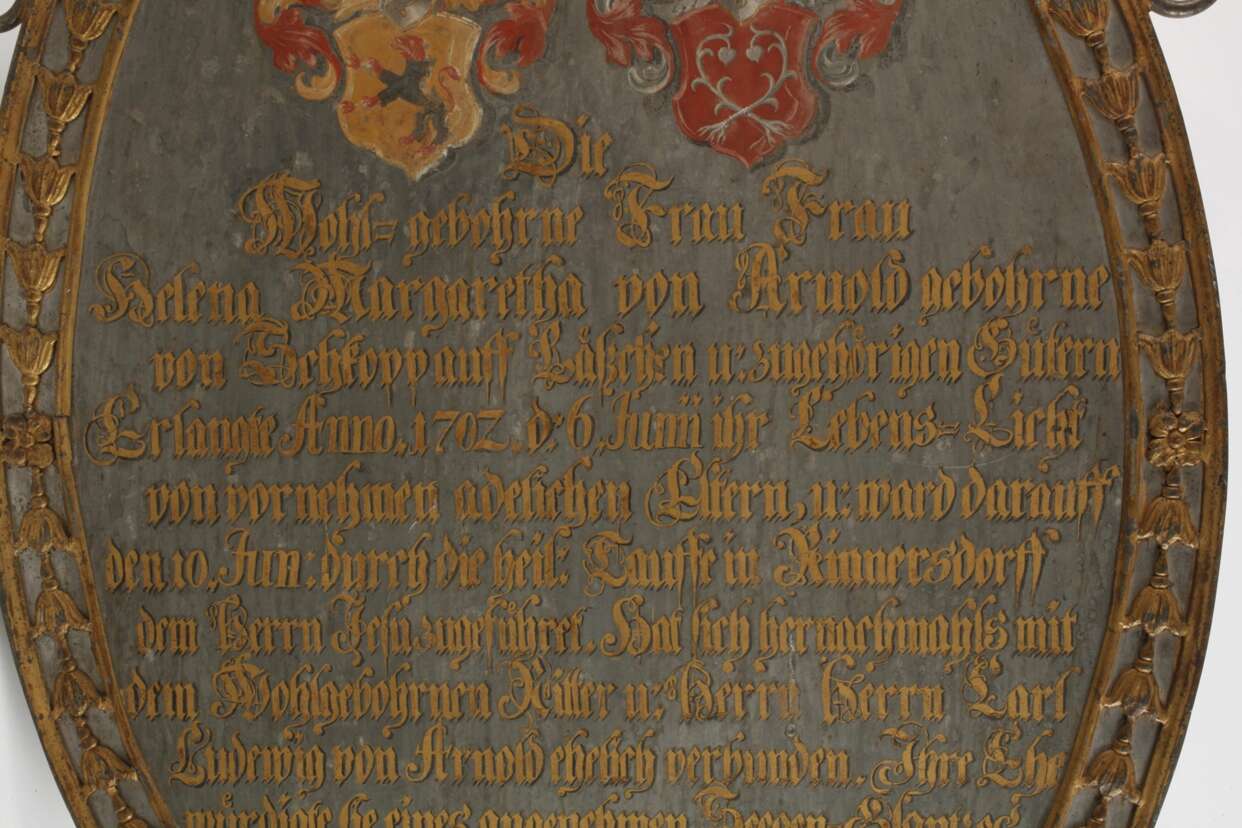 Die
Wohl=gebohrne Frau Frau
Helena Margaretha von Arnold gebohrne
von Schkopp auff u: zugehörigen Gütern
Erlangte Anno. 1702. d: 6. Junii ihr Lebens=Licht
von vornehmen adelichen Eltern, u: ward darauff
den 10. Jun: durch die heil: Tauffe in Rinnersdorff
dem Herrn Jesu zugeführet. Hat sich hernachmahls mit
dem Wohlgebohrnen Ritter u: Herrn Herrn Carl
Ludewig von Arnold ehelich verbunden. Ihre Ehe
würdigte eines angenehmen Seegen=